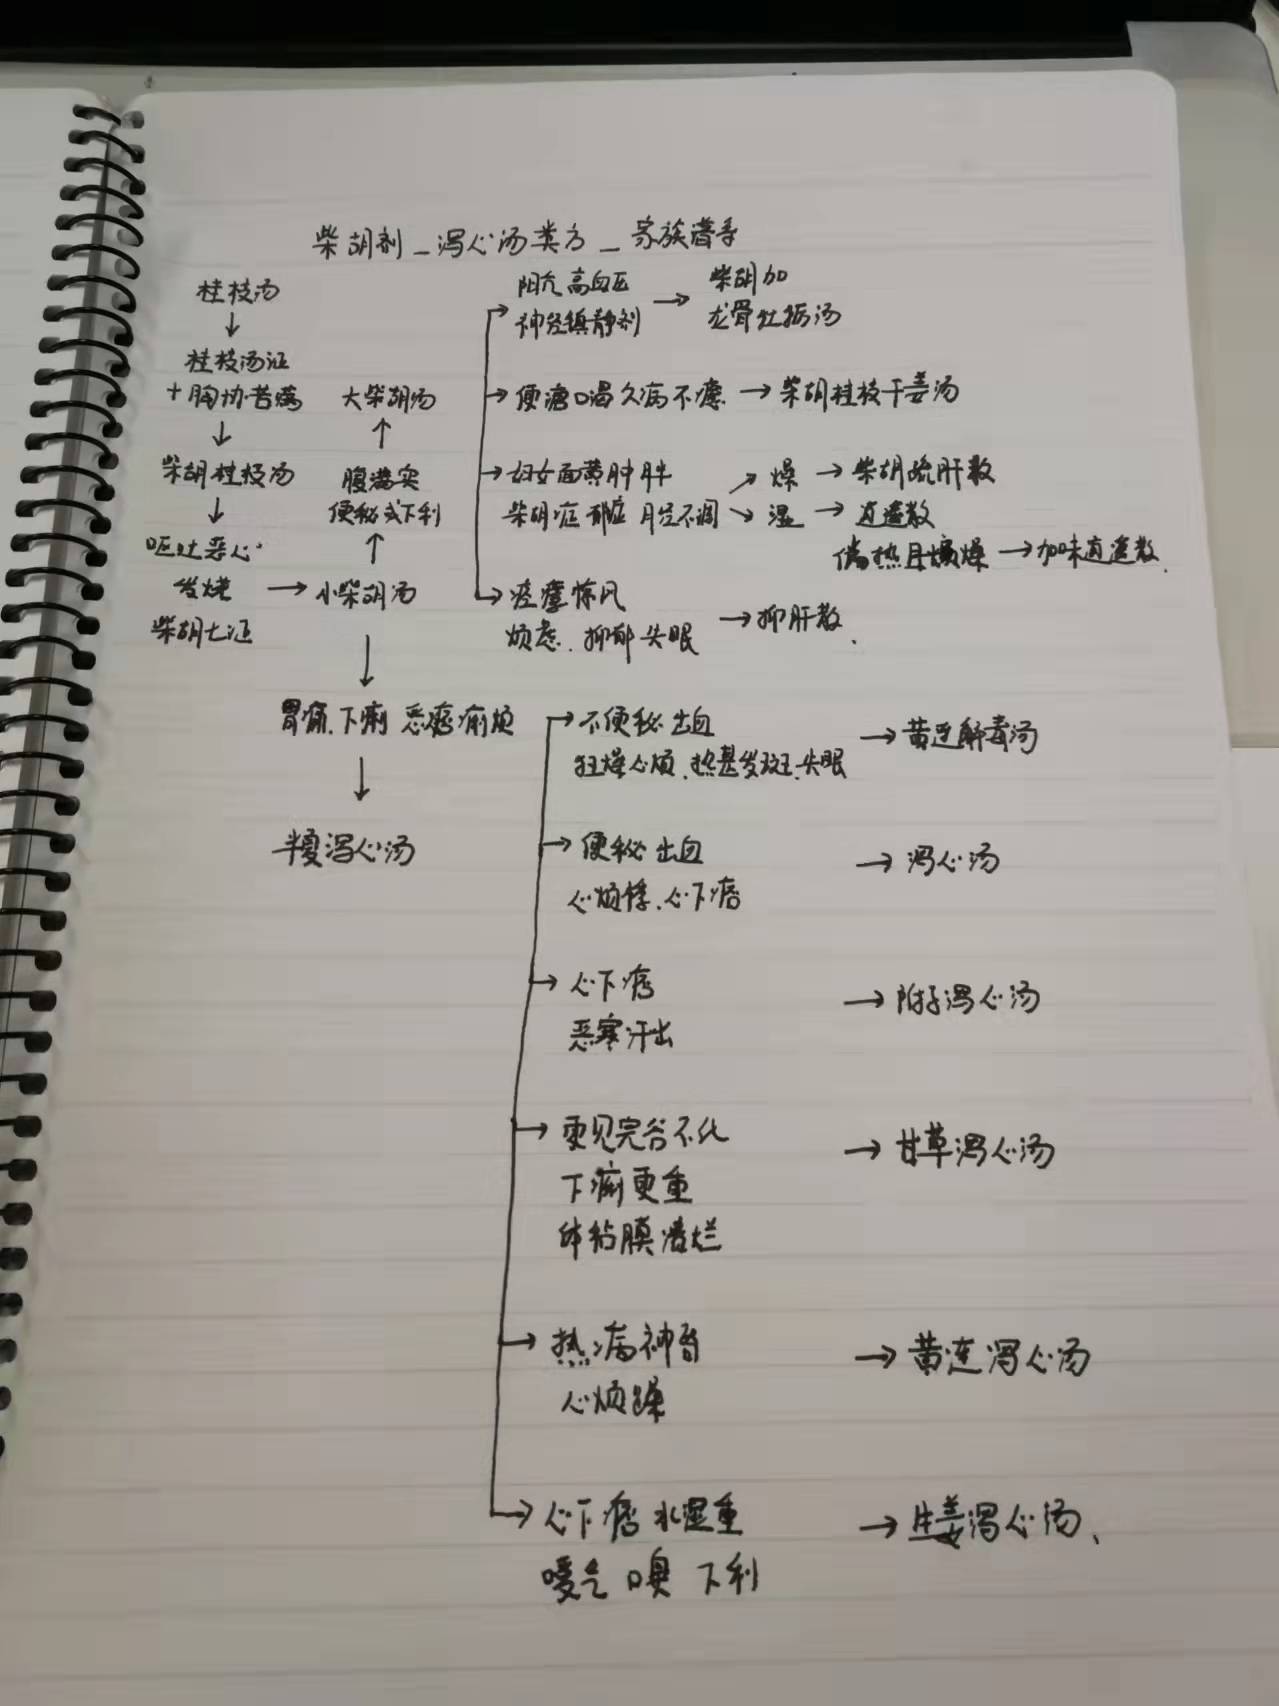 柴胡剂_泻心汤类方_家族谱系
桂枝汤
↓
桂枝汤证
+胸协苦满
↓
柴胡桂枝汤
↓
呕吐恶心
发烧
柴胡七证
→ 小柴胡汤
↑
腹满实
便秘或下利
↑
大柴胡汤
阳亢高血压
神经镇静剂
→ 柴胡加
龙骨牡蛎汤
便溏口渴久病不癒 → 柴胡桂枝干姜汤
妇女面黄肿胖
柴胡症郁症月经不调
燥 → 柴胡疏肝散
湿 → 逍遥散
偏热且烦燥 → 加味逍遥散
痉挛惊风
烦虑.抑郁失眠
→ 抑肝散
↓
胃痛.下痢 恶心痞烦
↓
半夏泻心汤
不便秘出血
狂燥心烦.热甚发斑.失眠
→ 黄连解毒汤
便秘出血
心烦悸.心下痞
→ 泻心汤
心下痞
恶寒汗出
→ 附子泻心汤
更见完谷不化
下痢更重
体粘膜溃烂
→ 甘草泻心汤
热病神昏
心烦躁
→ 黄连泻心汤
心下痞水湿重
嗳气口臭下利
→ 生姜泻心汤、